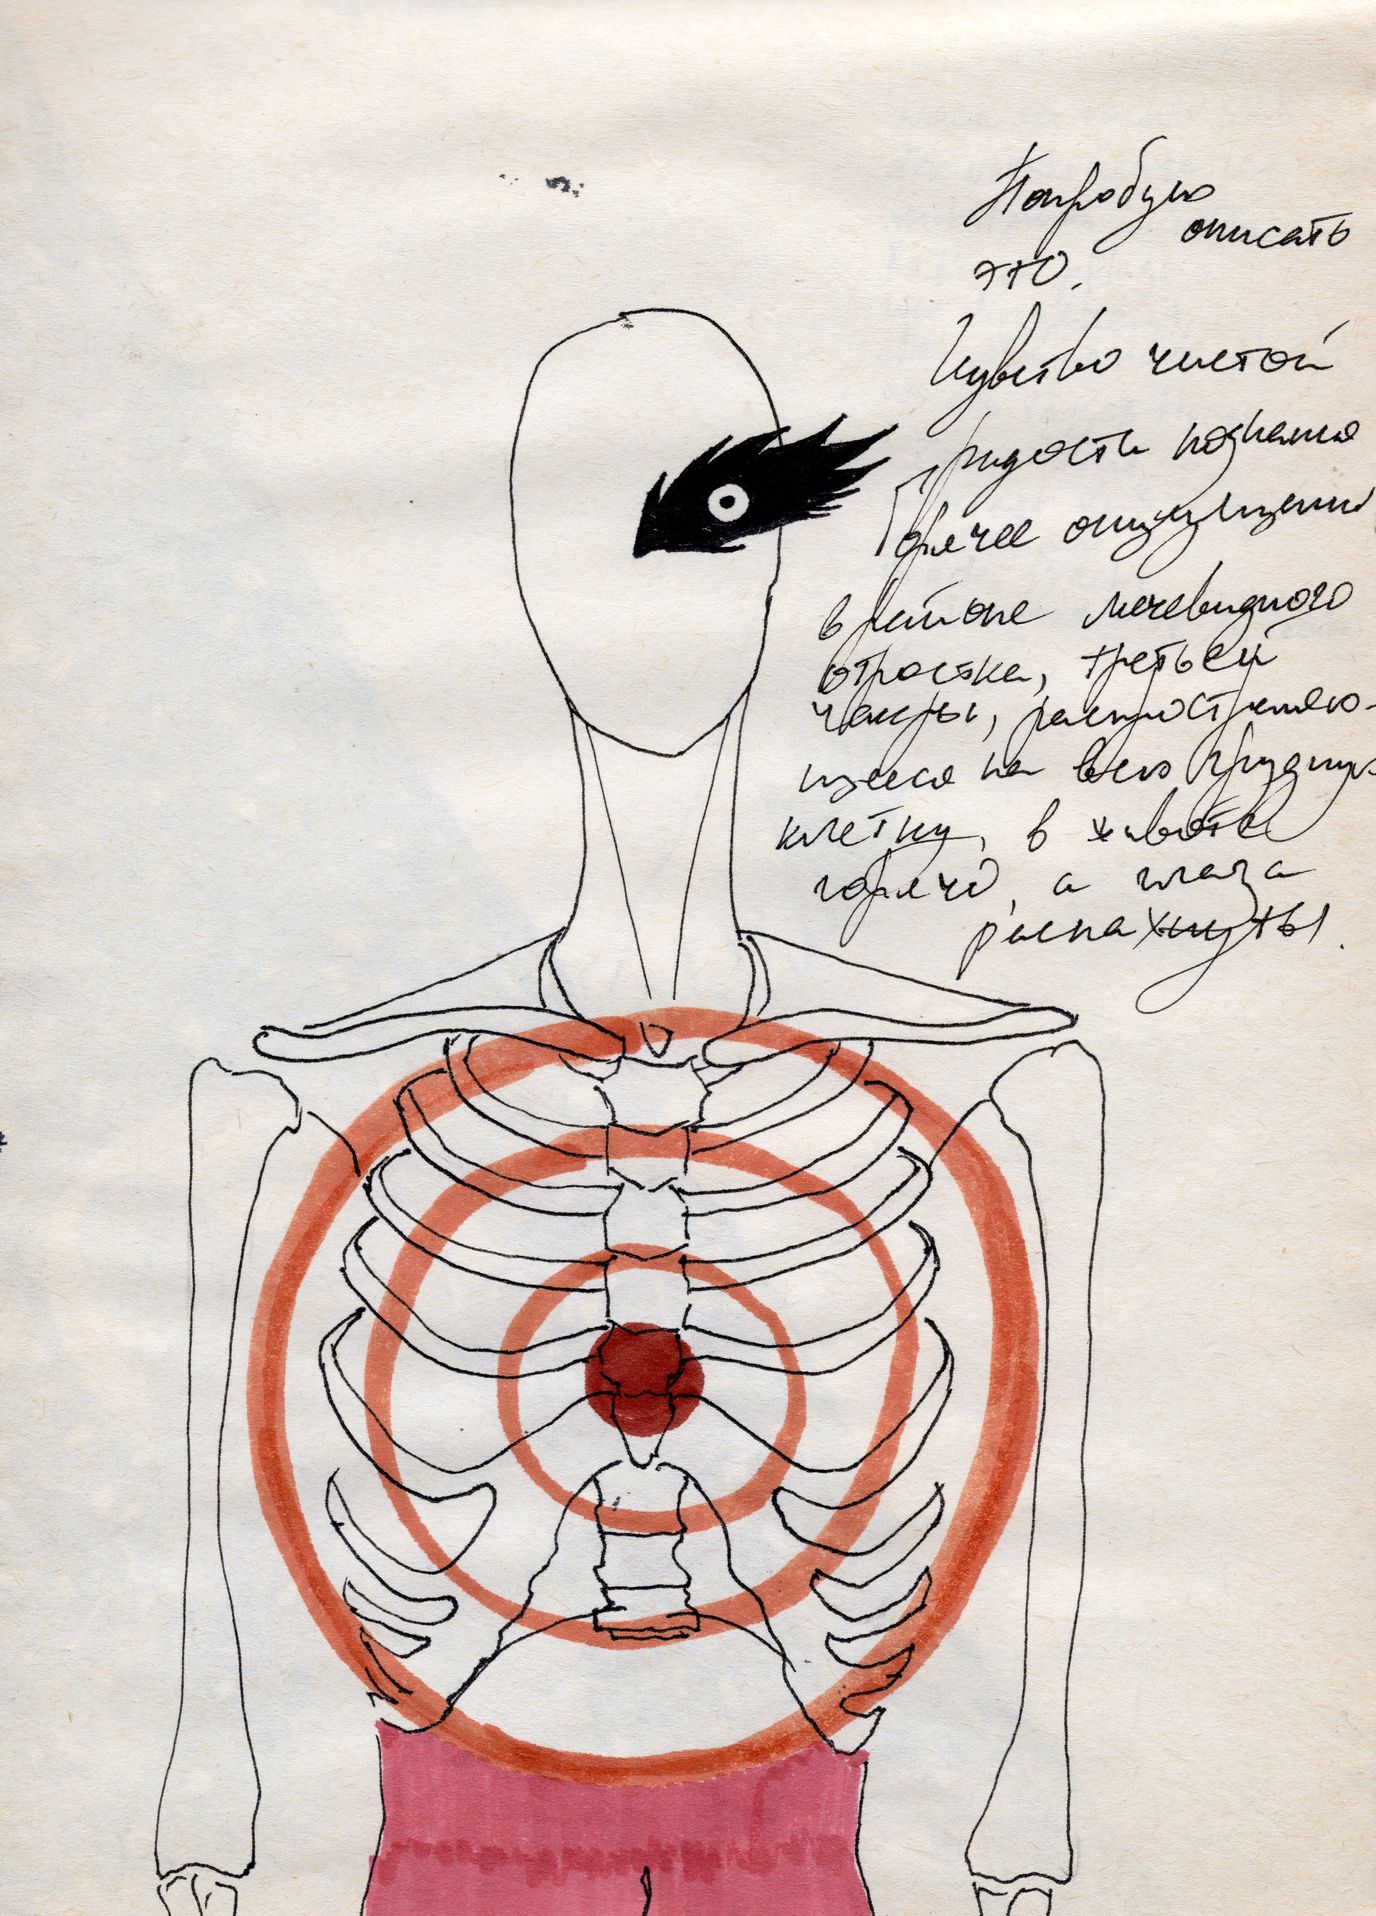 Попробую
описать
это.
Чувство чистой
радости познания
Горячее ощущение
в районе мечевидного
отростка, третьей
чакры, распространяю-
щееся на всю грудную
клетку, в животе
горячо, а глаза
распахнуты.